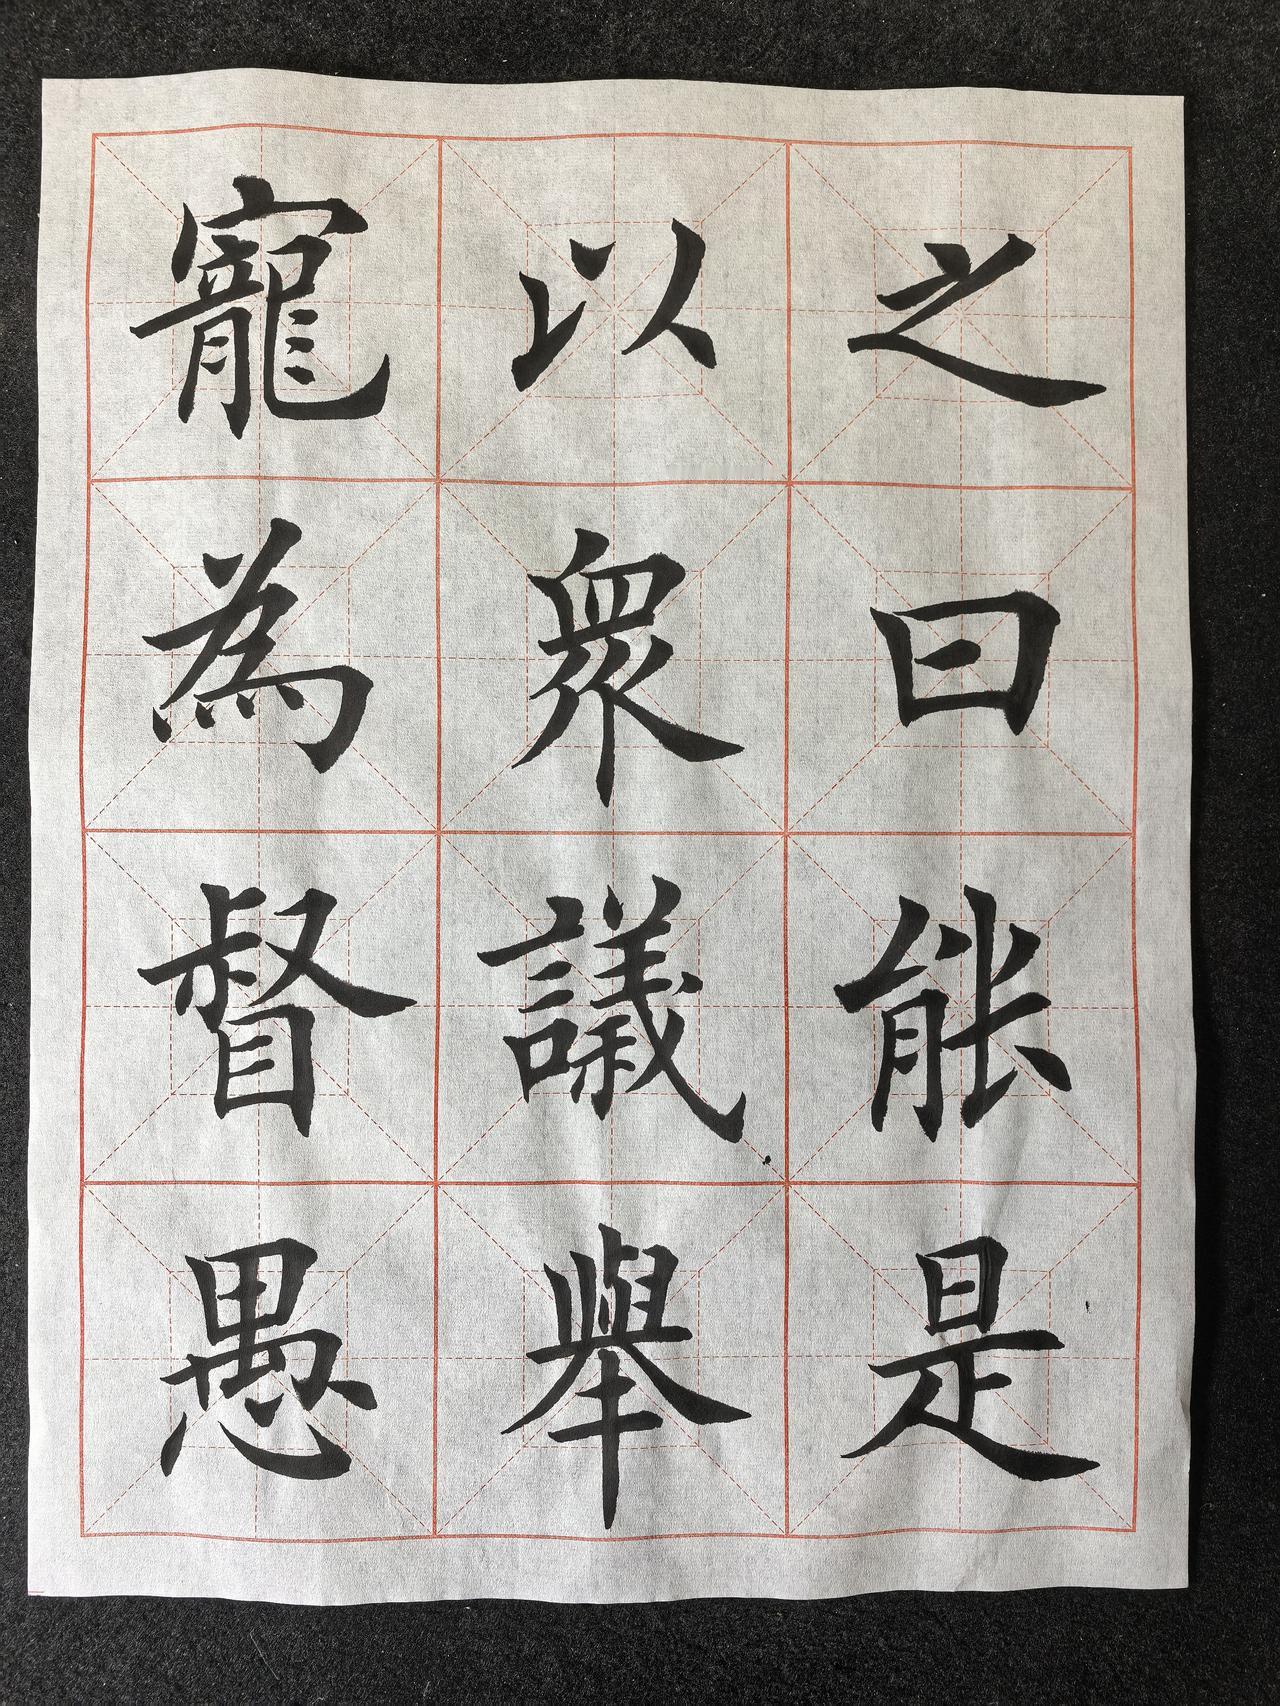 之曰能是
以眾議舉
寵為督愚